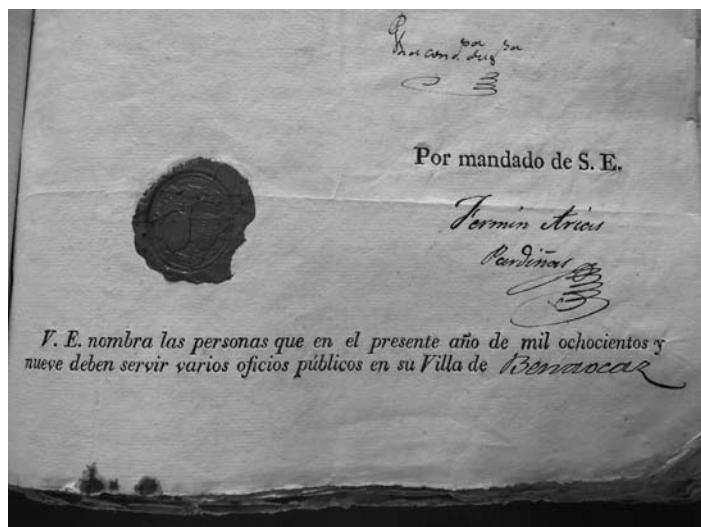 Por mandado de S. E.
Fermin Arias
Pardiñas
V. E. nombra las personas que en el presente año de mil ochocientos y
nueve deben servir varios oficios públicos en su Villa de Benaocaz